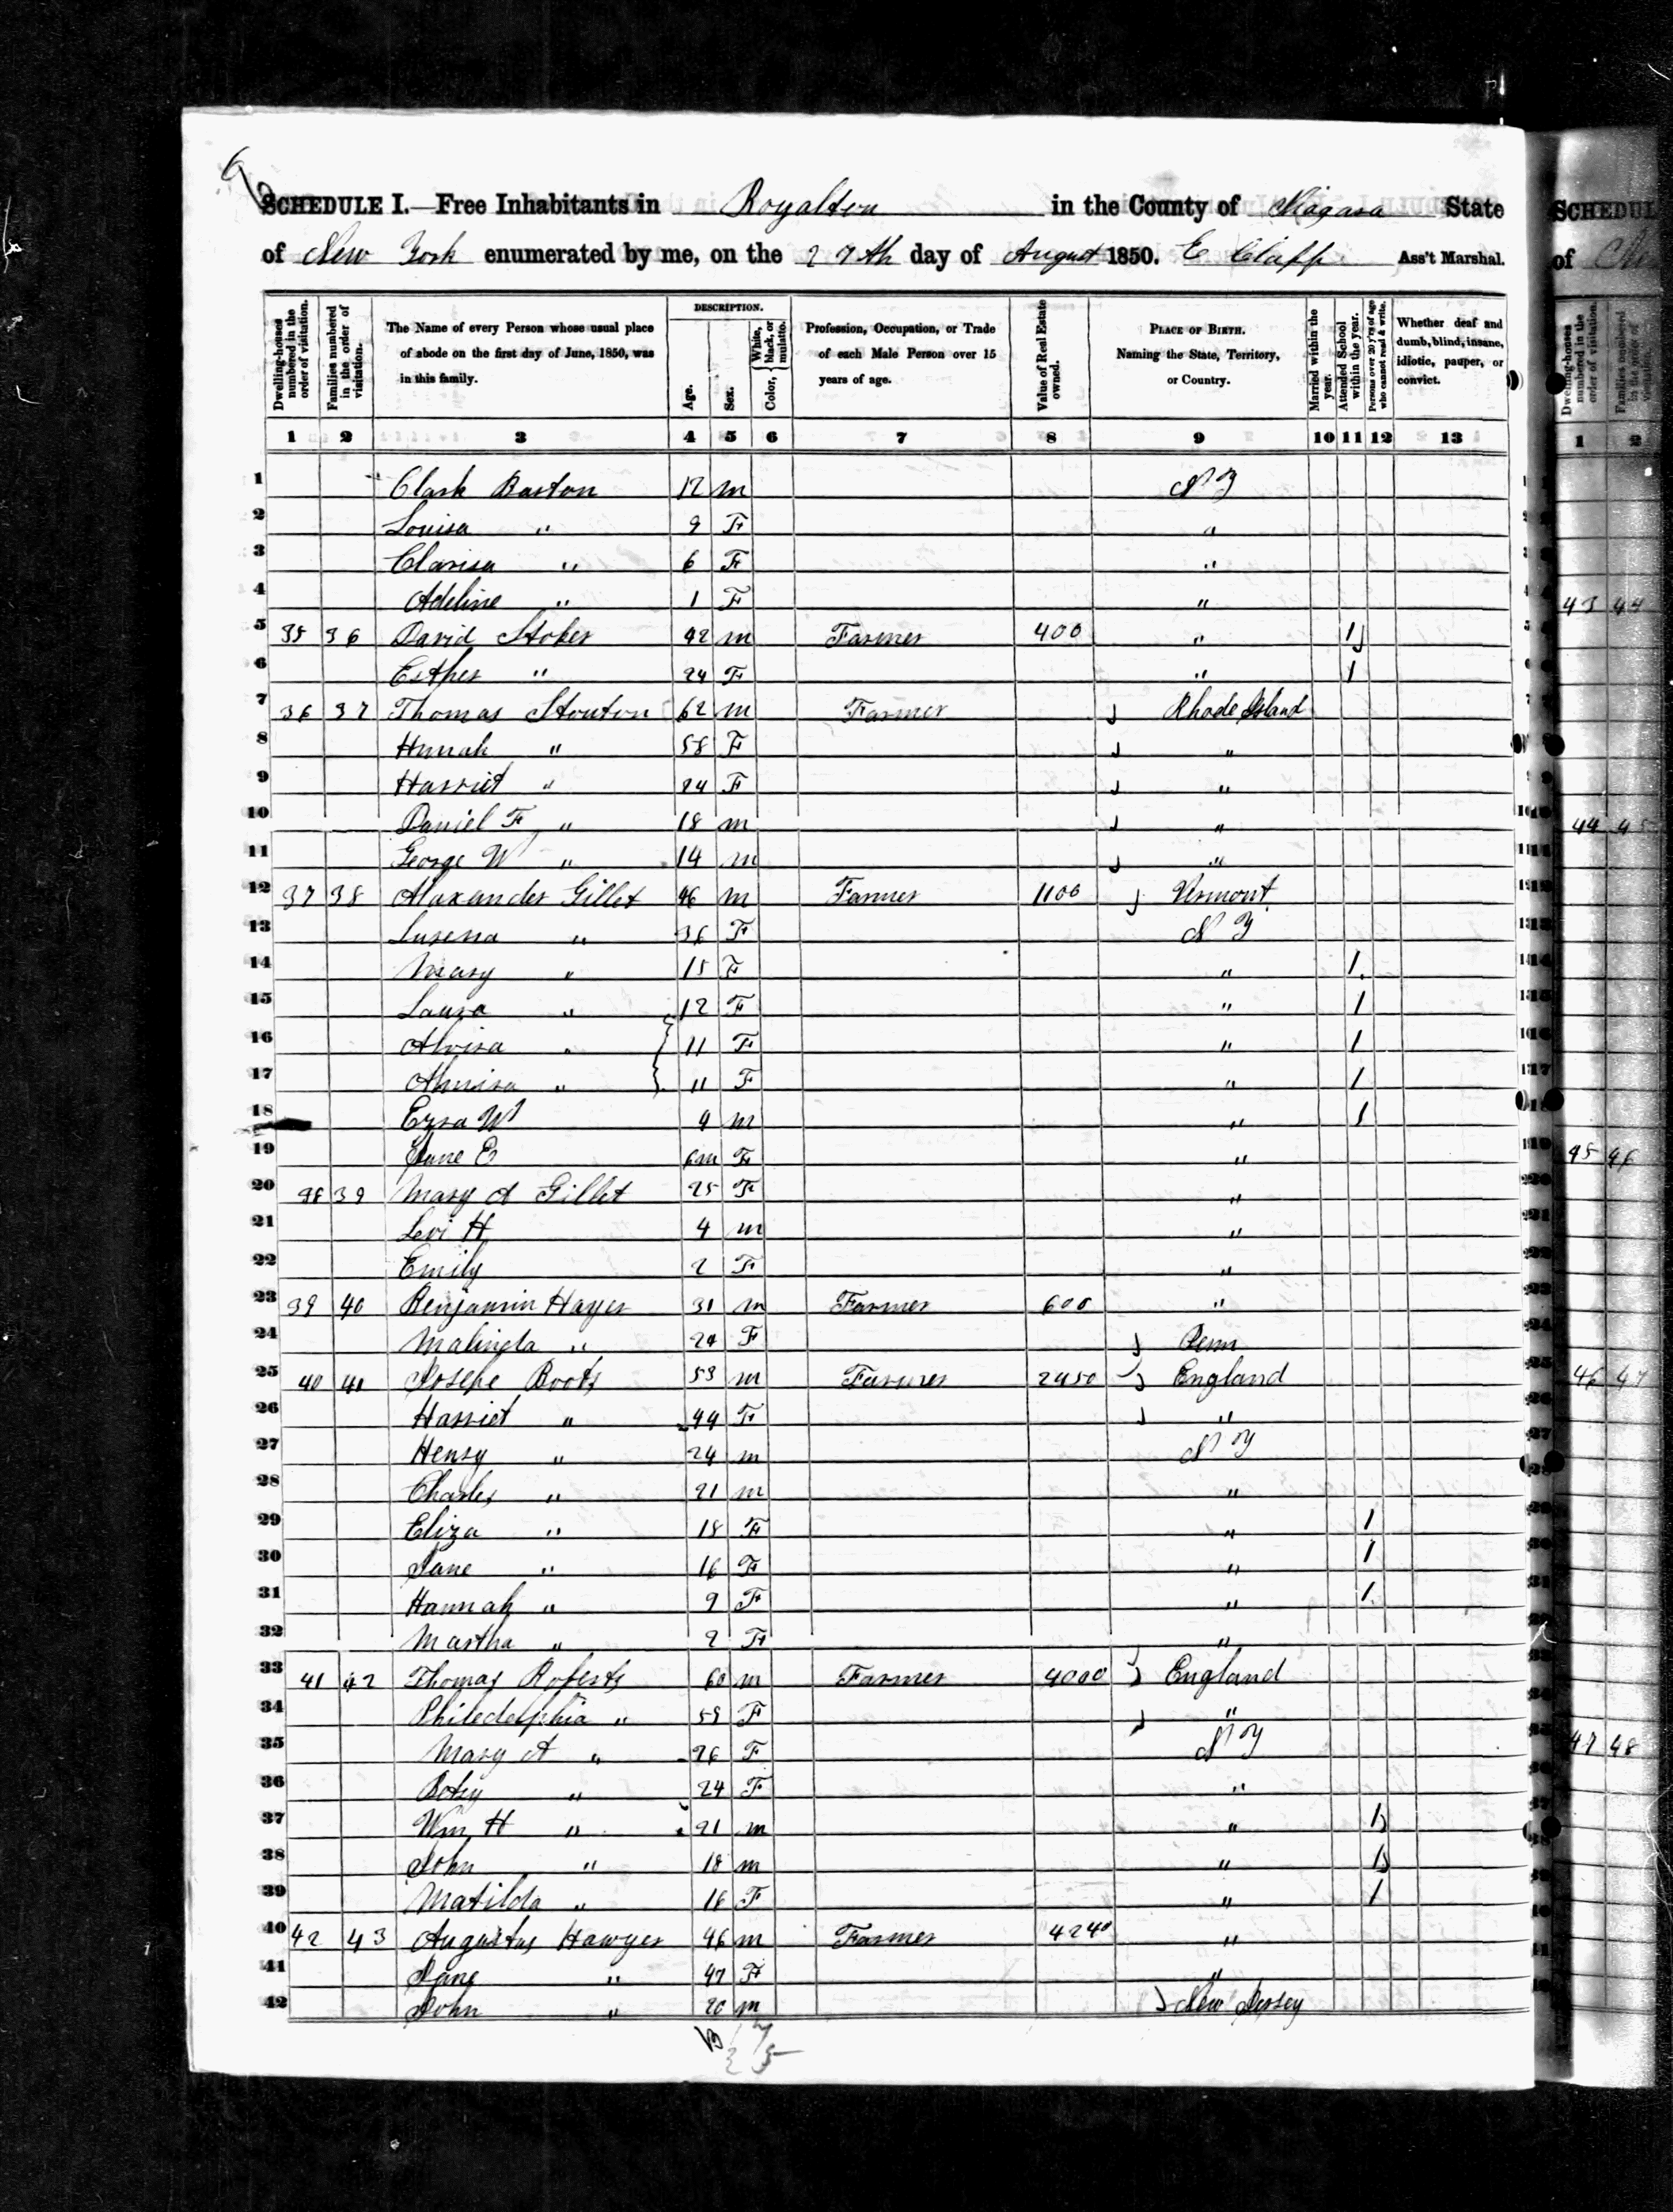 SCHEDULE I.—Free Inhabitants in Royalton in the County of Niagara State
of New York enumerated by me, on the 27th day of August 1850. E Clapp Ass't Marshal.
Dwelling-houses numbered in the order of visitation.
Families numbered in the order of visitation.
The Name of every Person whose usual place of abode on the first day of June, 1850, was in this family.
DESCRIPTION.
Age.
Sex.
Color, { White, black, or mulatto.
Profession, Occupation, or Trade of each Male Person over 15 years of age.
Value of Real Estate owned.
PLACE OF BIRTH. Naming the State, Territory, or Country.
Married within the year.
Attended School within the year.
Persons over 20 y'rs of age who cannot read & write.
Whether deaf and dumb, blind, insane, idiotic, pauper, or convict.
1 2 3 4 5 6 7 8 9 10 11 12 13
1 Clark Barton 12 m N Y
2 Louisa " 9 F "
3 Clarisa " 6 F "
4 Adeline " 1 F "
5 35 36 David Stokes 42 m Farmer 400 " 1
6 Esther " 24 F " 1
7 36 37 Thomas Stouton 62 m Farmer Rhode Island
8 Hnnah " 58 F "
9 Harriet " 24 F "
10 Daniel F " 18 m "
11 George W " 14 m "
12 37 38 Alaxander Gillet 46 m Farmer 1100 Vermont
13 Lurena " 36 F N Y
14 Mary " 15 F " 1
15 Laura " 12 F " 1
16 Alvira " 11 F " 1
17 Almira " 11 F " 1
18 Ezra W 4 m " 1
19 Jane E 6m F "
20 38 39 Mary A Gillet 25 F "
21 Levi H 4 m "
22 Emily 2 F "
23 39 40 Benjamin Hayes 31 m Farmer 600 "
24 Malinda " 24 F Penn
25 40 41 Joseph Boots 53 m Farmer 2450 England
26 Harriet " 44 F "
27 Henry " 24 m N Y
28 Charles " 21 m "
29 Eliza " 18 F " 1
30 Jane " 16 F " 1
31 Hannah " 9 F " 1
32 Martha " 2 F "
33 41 42 Thomas Roberts 60 m Farmer 4000 England
34 Philedelphia " 59 F "
35 Mary A " 26 F N Y
36 Betsy " 24 F "
37 Wm H " 21 m " 1
38 John " 18 m " 1
39 Matilda " 16 F " 1
40 42 43 Augustus Hawyer 46 m Farmer 4240 "
41 Jane " 47 F "
42 John " 20 m New Jersey
SCHEDUL
of
1 2
43 44
44 45
45 46
46 47
47 48